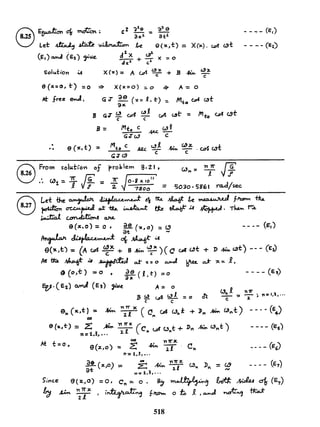 8.25 Equation of motion : c² ∂²θ/∂x² = ∂²θ/∂t² ---- (E₁)
Let steady state vibration be θ(x,t) = X(x). cos ωt ---- (E₂)
(E₁) and (E₂) give d²X/dx² + ω²/c² X = 0
Solution is X(x) = A cos ωx/c + B sin ωx/c
θ(x=0, t) = 0 ⇒ X(x=0) = 0 ⇒ A = 0
At free end, GJ ∂θ/∂x (x=l, t) = Mt₀ cos ωt
B GJ ω/c cos ωl/c cos ωt = Mt₀ cos ωt
B = Mt₀ c/GJω sec ωl/c
∴ θ(x,t) = Mt₀ c/GJω sec ωl/c sin ωx/c · cos ωt
8.26 From solution of problem 8.21, ωₙ = nπ/l √G/ρ
∴ ω₁ = π/l √G/ρ = π/2 √0.8 × 10¹¹/7800 = 5030.5861 rad/sec
8.27 Let the angular displacement of the shaft be measured from the
position occupied at the instant the shaft is stopped. Then the
initial conditions are
θ(x,0) = 0 , ∂θ/∂t (x,0) = ω ---- (E₁)
Angular displacement of shaft is
θ(x,t) = (A cos ωx/c + B sin ωx/c)(C cos ωt + D sin ωt) --- (E₂)
As the shaft is supported at x=0 and free at x=l,
θ(0,t) = 0 , ∂θ/∂x (l,t) = 0 ---- (E₃)
Eqs. (E₂) and (E₃) give A = 0
B ω/c cos ωl/c = 0 or ωₙl/c = nπ/2 ; n=1,3,...
θₙ(x,t) = sin nπx/2l (Cₙ cos ωₙt + Dₙ sin ωₙt) ---- (E₄)
θ(x,t) = ∞Σn=1,3,... sin nπx/2l (Cₙ cos ωₙt + Dₙ sin ωₙt) ---- (E₅)
At t=0, θ(x,0) = ∞Σn=1,3,... sin nπx/2l Cₙ ---- (E₆)
∂θ/∂t (x,0) = ∞Σn=1,3,... sin nπx/2l ωₙ Dₙ = ω ---- (E₇)
Since θ(x,0) = 0, Cₙ = 0. By multiplying both sides of (E₇)
by sin nπx/2l, integrating from 0 to l, and noting that
518